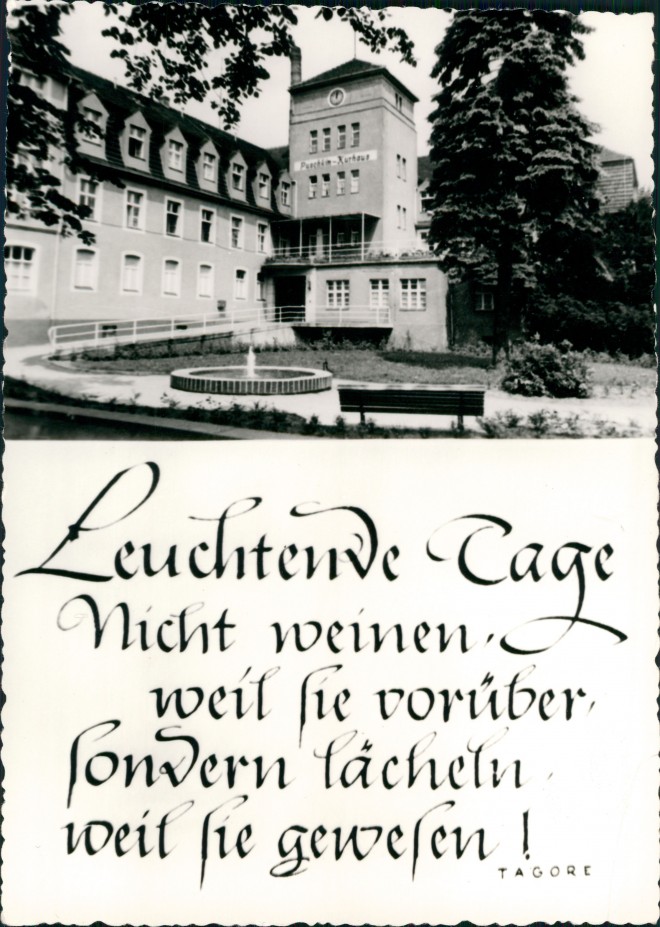 Puschkin-Kurhaus
Leuchtende Tage
Nicht weinen,
weil sie vorüber,
sondern lächeln,
weil sie gewesen!
TAGORE